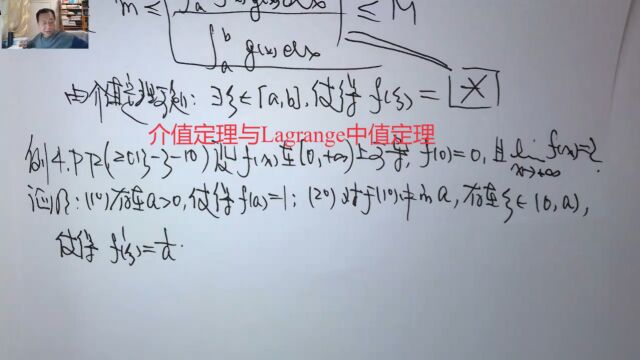 m ≤ ∫ₐᵇ g(x)dx ≤ M
由介值定理知: ∃ξ∈[a,b], 使得 f(ξ) = *
介值定理与Lagrange中值定理
例4.P72(2013-3-10) 设f(x)在[0,+∞)上可导, f(0)=0, 且lim x→+∞ f(x)=2.
证明: (1°) 存在a>0, 使得f(a)=1; (2°) 对于(1°)中的a, 存在ξ∈(0,a),
使得 f'(ξ)=1/a.